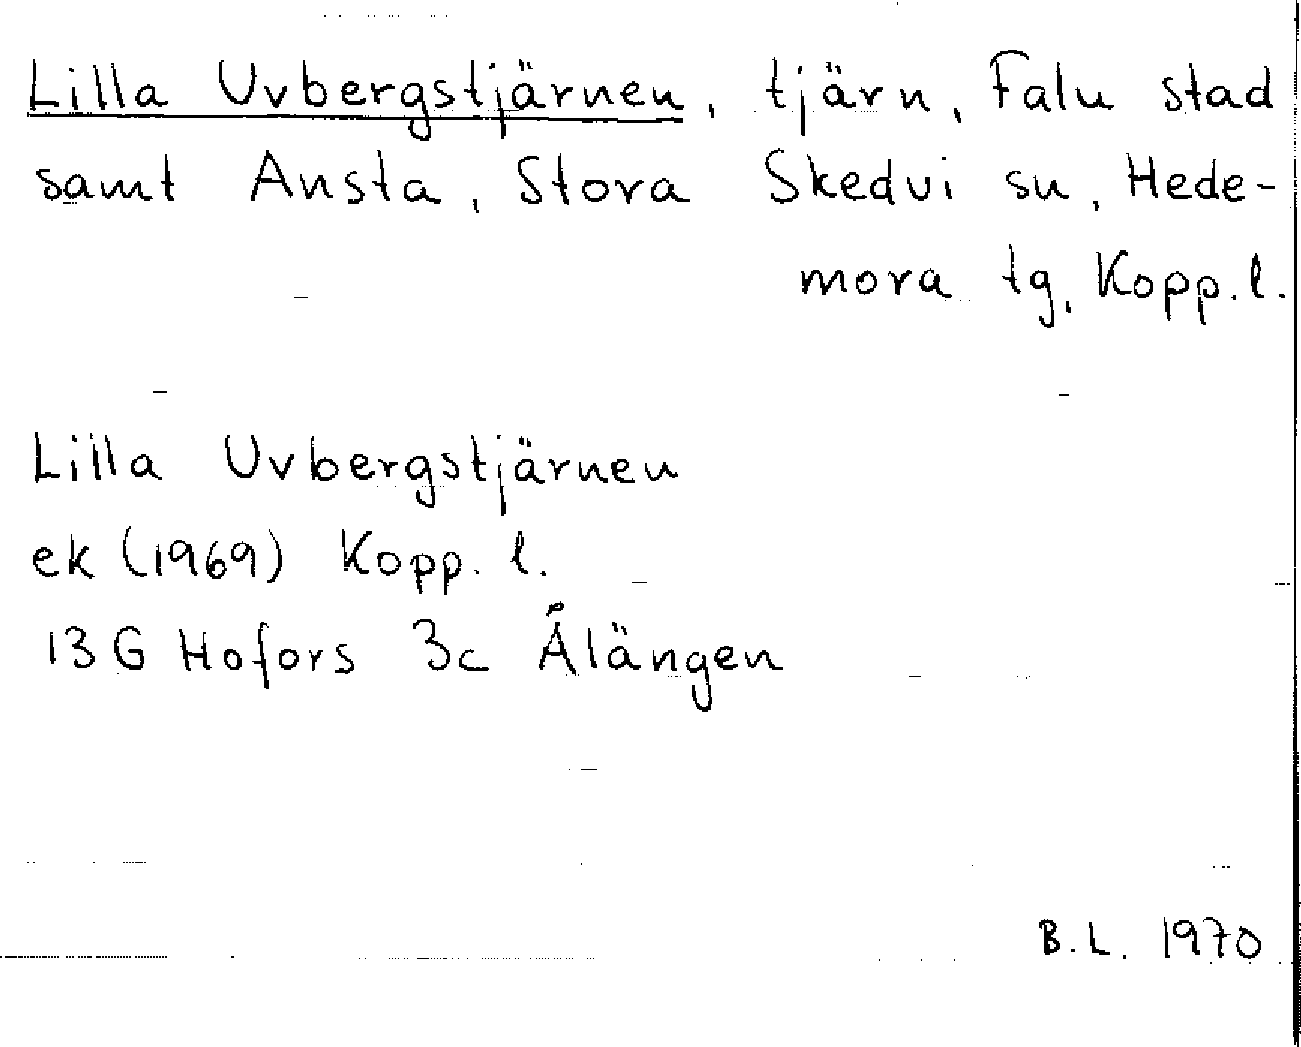 Lilla Uvbergstjärnen, tjärn, Falu stad
samt Ansta, Stora Skedvi sn, Hede-
mora tg, Kopp. l.
Lilla Uvbergstjärnen
ek (1969) Kopp. l.
13 G Hofors 3c Ålängen
B.L. 1970